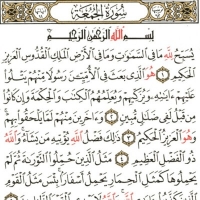 سورة الجمعة
بسم الله الرحمن الرحيم
يسبح لله ما في السموت وما في الأرض الملك القدوس العزيز
الحكيم ١ هو الذي بعث في الأمين رسولا منهم يتلوا
عليهم ءايته ويزكيهم ويعلمهم الكتب والحكمة وإن كانوا
من قبل لفي ضلل مبين ٢ وءاخرين منهم لما يلحقوا بهم
وهو العزيز الحكيم ٣ ذلك فضل الله يؤتيه من يشاء والله
ذو الفضل العظيم ٤ مثل الذين حملوا التورىة ثم لم
يحملوها كمثل الحمار يحمل أسفارا بئس مثل القوم